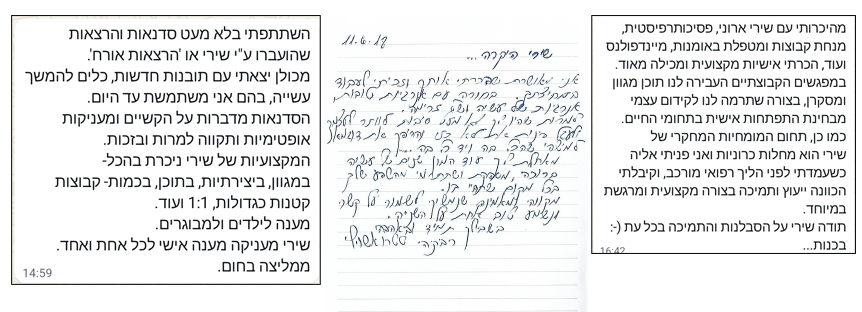 מהיכרותי עם שירי ארוני, פסיכותרפיסטית,
מנחת קבוצות ומטפלת באומנות, מיינדפולנס
ועוד, הכרתי אישיות מקצועית ומכילה מאוד.
במפגשים הקבוצתיים העבירה לנו תוכן מגוון
ומסקרן, בצורה שתרמה לנו לקידום עצמי
מבחינת התפתחות אישית בתחומי החיים.
כמו כן, תחום המומחיות המחקרי של
שירי הוא מחלות כרוניות ואני פניתי אליה
כשעמדתי לפני הליך רפואי מורכב, וקיבלתי
הכוונה ייעוץ ותמיכה בצורה מקצועית ומרגשת
במיוחד.
תודה שירי על הסבלנות והתמיכה בכל עת (-:
בכנות...
16:42
11.6.17
שירי היקרה...
אני מאושרת שהכרתי אותך וזכיתי לעבוד
במחיצתך. בחורה עם אנרגיות טובות,
אנרגיות של עשיה
מאחלת לך עוד המון שנים של עשיה
ברוכה,
בכל מקום
מקווה ומאמינה שנמשיך לשמור על קשר
ונשמע טוב אחת על השניה.
בשבילך תמיד ובאהבה
רבקה
השתתפתי בלא מעט סדנאות והרצאות
שהועברו ע"י שירי או 'הרצאות אורח'.
מכולן יצאתי עם תובנות חדשות, כלים להמשך
עשייה, בהם אני משתמשת עד היום.
הסדנאות מדברות על הקשיים ומעניקות
אופטימיות ותקווה למרות ובזכות.
המקצועיות של שירי ניכרת בהכל-
במגוון, ביצירתיות, בתוכן, בכמות- קבוצות
קטנות כגדולות, 1:1 ועוד.
מענה לילדים ולמבוגרים.
שירי מעניקה מענה אישי לכל אחת ואחד.
ממליצה בחום.
14:59